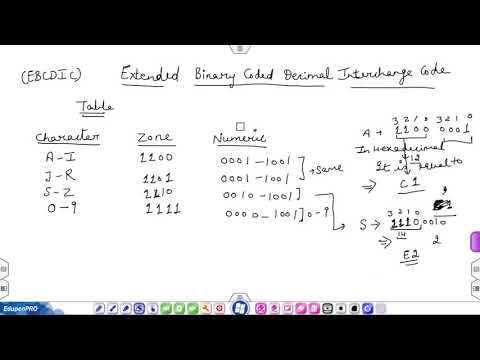 (EBCDIC) Extended Binary Coded Decimal Interchange Code
Table
Character Zone Numeric
A-I 1100 0001-1001
J-R 1101 0001-1001
→ Same
S-Z 1110 0010-1001
0-9 1111 0000-1001] 0-9
3 2 1 0 3 2 1 0
A → 1100 0001
In Hexadecimal
12
It is equal to
⇒ C1
3 2 1 0
S → 1110 0010
⇒ 14 2
E2
EdupenPRO